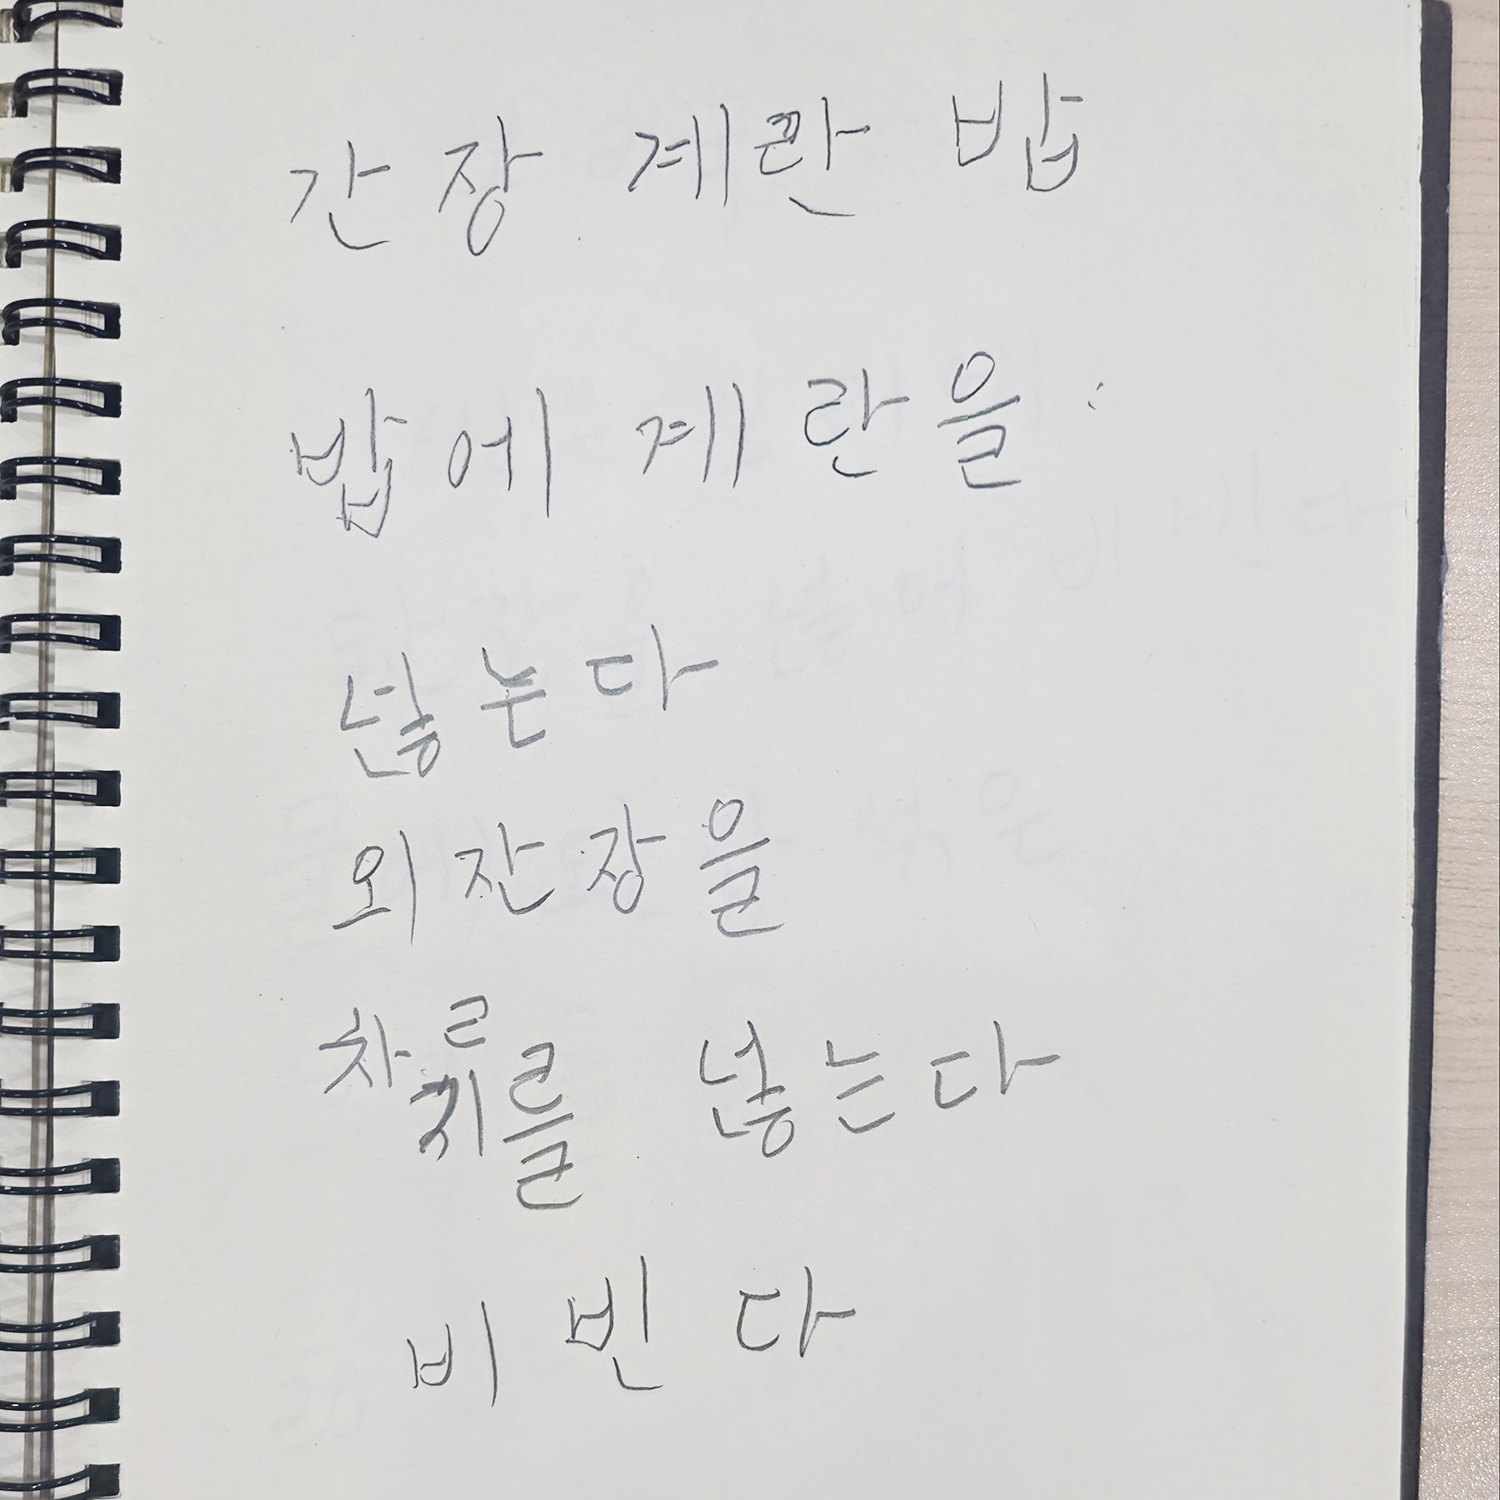 간장 계란 밥
밥에 계란을
넣는다
외잔장을
차를 넣는다
비빈다